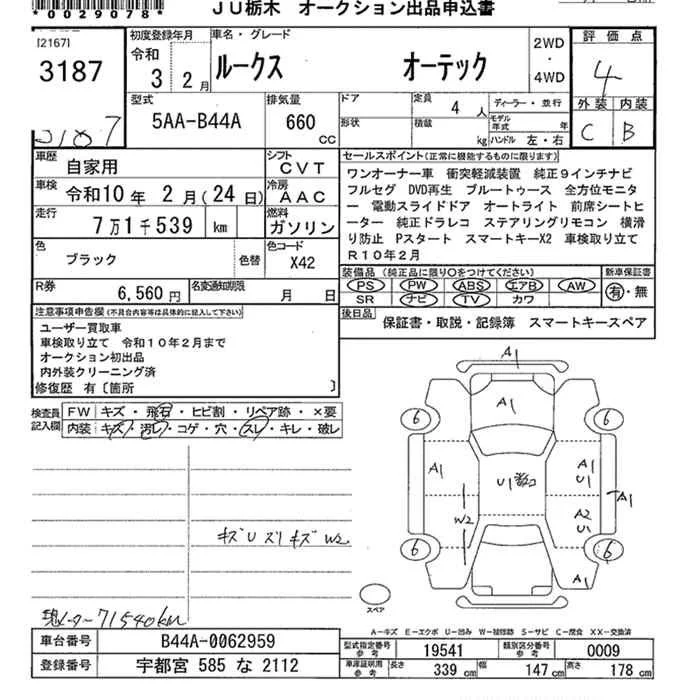 *0029078*
JU栃木 オークション出品申込書
[2167]
3187
3187
初度登録年月
令和
3 2月
車名・グレード
ルークス オーテック
2WD
・
4WD
評価点
4
外装 内装
C B
型式
5AA-B44A
排気量
660
CC
ドア
形状
定員 4 人
積載 kg
ディーラー・並行
モデル年式 年
ハンドル 左・右
車歴 自家用
シフト
CVT
車検 令和10年 2月(24日)
冷房
AAC
走行 7万1千539 km
燃料
ガソリン
色
ブラック
色替
色コード
X42
R券 6,560円
名変通知期限 月 日
セールスポイント(正常に機能するものに限ります)
ワンオーナー車 衝突軽減装置 純正9インチナビ
フルセグ DVD再生 ブルートゥース 全方位モニタ
ー 電動スライドドア オートライト 前席シートヒ
ーター 純正ドラレコ ステアリングリモコン 横滑
り防止 Pスタート スマートキーX2 車検取り立て
R10年2月
装備品(純正品に限り○をつけてください)
PS PW ABS エアB AW
SR ナビ TV カワ
新車保証書
有・無
後日品 保証書・取説・記録簿 スマートキースペア
注意事項申告欄(不具合内容等は具体的に記入して下さい)
ユーザー買取車
車検取り立て 令和10年2月まで
オークション初出品
内外装クリーニング済
修復歴 有〔箇所 〕
検査員
記入欄
FW キズ・飛石・ヒビ割・リペア跡・×要
内装 キズ・汚レ・コゲ・穴・スレ・キレ・破レ
キズU スリキズ W2
71540km
A1
A1
6
6
A1
U1
A1
U1
A1
W2
A2
U1
6
6
A1
スペア
A-キズ E-エクボ U-凹み W-補修跡 S-サビ C-腐食 XX-交換済
車台番号 B44A-0062959
登録番号 宇都宮 585 な 2112
型式指定番号
参考
19541
類別区分番号
参考
0009
車庫証明用
参考
長さ 339 cm 幅 147 cm 高さ 178 cm